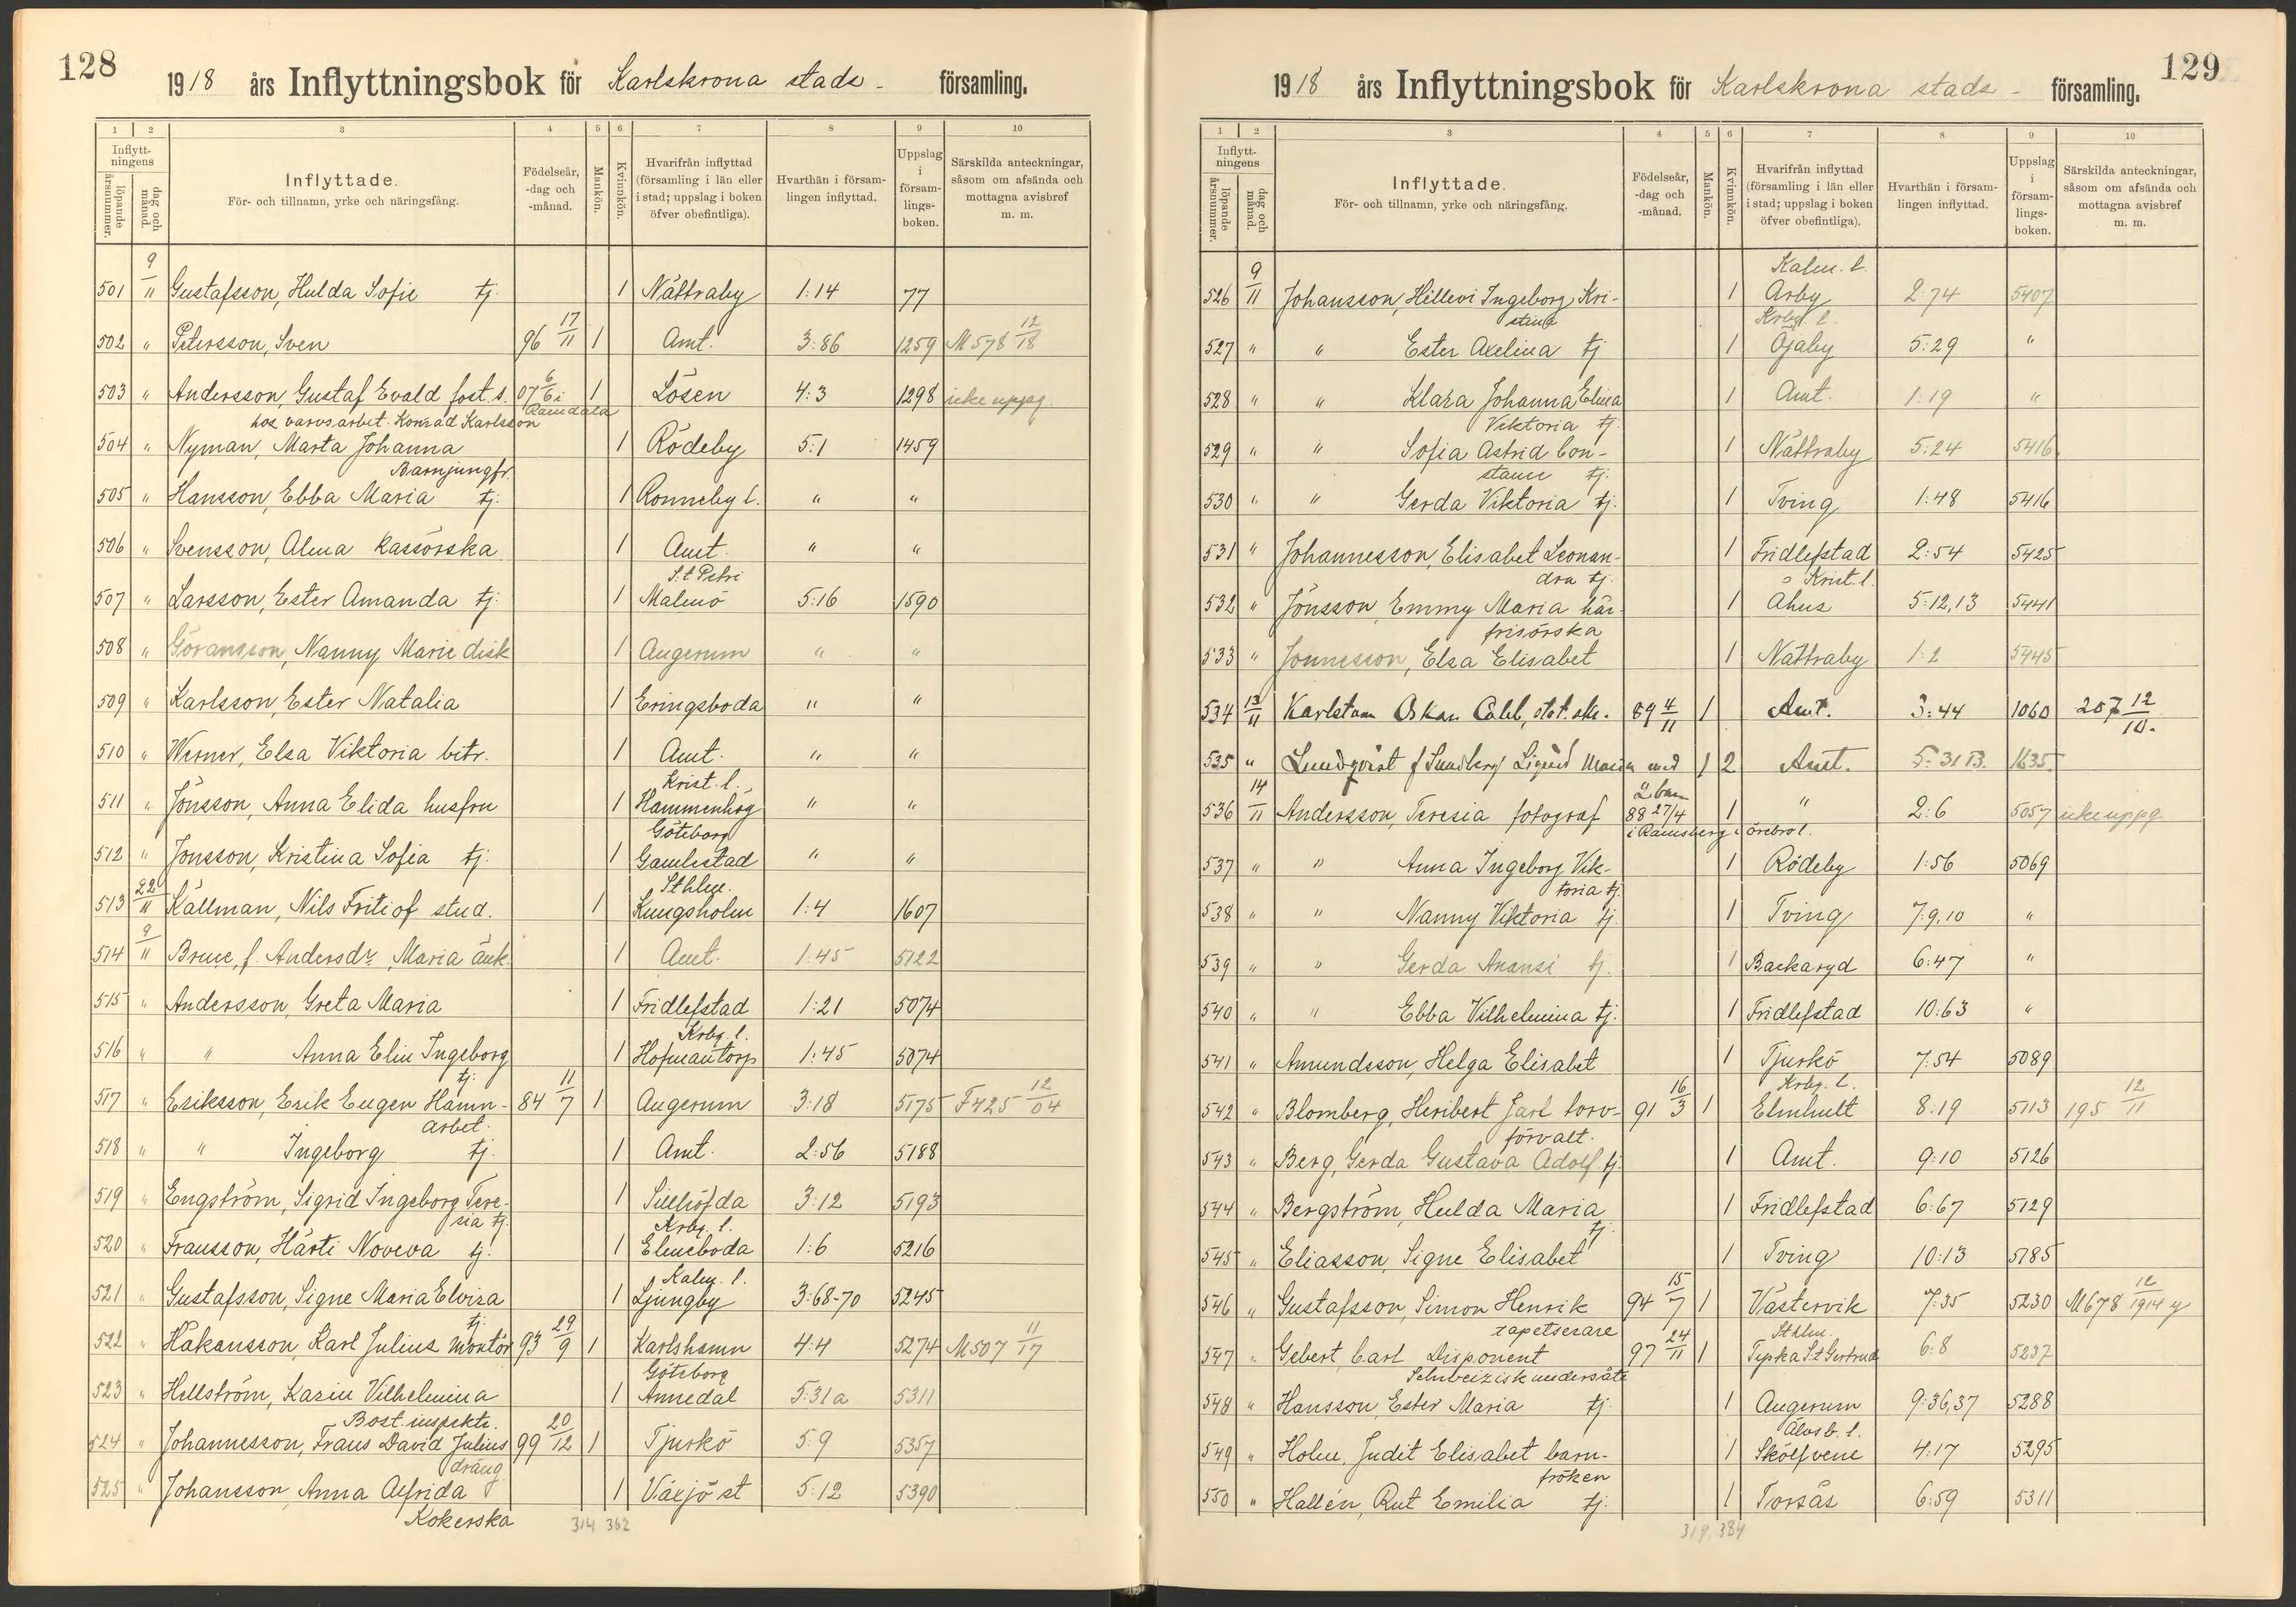 128
1918 års Inflyttningsbok för Karlskrona stads - församling.
1 2 3 4 5 6 7 8 9 10
Inflyttningens
löpande årsnummer.
dag och månad.
Inflyttade.
För- och tillnamn, yrke och näringsfång.
Födelseår, -dag och -månad.
Mankön.
Kvinnkön.
Hvarifrån inflyttad (församling i län eller i stad; uppslag i boken öfver obefintliga).
Hvarthän i församlingen inflyttad.
Uppslag i församlingsboken.
Särskilda anteckningar, såsom om afsända och mottagna avisbref m. m.
501 9/11 Gustafsson, Hulda Sofie tj. 1 Nättraby 1:14 77
502 " Petersson, Sven 96 17/11 1 Amt. 3:86 1259 M 578 12/18
503 " Andersson, Gustaf Evald fost. s. 07 6/6 i Ramdala 1 Lösen 4:3 1298 icke uppg.
hos varvsarbet. Konrad Karlsson
504 " Nyman, Marta Johanna 1 Rödeby 5:1 1459
Barnjungfr.
505 " Hansson, Ebba Maria tj. 1 Ronneby l. " "
506 " Svensson, Alma kassörska 1 Amt. " "
507 " Larsson, Ester Amanda tj. 1 S:t Petri Malmö 5:16 1590
508 " Göransson, Nanny Marie disk 1 Augerum " "
509 " Karlsson, Ester Natalia 1 Eringsboda " "
510 " Werner, Elsa Viktoria bitr. 1 Amt. " "
511 " Jönsson, Anna Elida husfru 1 Krist. l. Hammenhög " "
512 " Jonsson, Kristina Sofia tj. 1 Göteborg Gamlestad " "
513 22/11 Källman, Nils Fritiof stud. 1 Sthlm. Kungsholm 1:4 1607
514 9/11 Brune, f. Andersdr. Maria änk. 1 Amt. 1:45 5122
515 " Andersson, Greta Maria 1 Fridlefstad 1:21 5074
516 " " Anna Elin Ingeborg tj. 1 Krbg. l. Hofmantorp 1:45 5074
517 " Eriksson, Erik Eugen Hamn-arbet. 84 11/7 1 Augerum 3:18 5175 F425 12/04
518 " " Ingeborg tj. 1 Amt. 2:56 5188
519 " Engström, Sigrid Ingeborg Teresia tj. 1 Sillhöfda 3:12 5193
520 " Fransson, Härti Noveva tj. 1 Krbg. l. Elmeboda 1:6 5216
521 " Gustafsson, Signe Maria Elvira tj. 1 Kalm. l. Ljungby 3:68-70 5245
522 " Håkansson, Karl Julius montör 93 29/9 1 Karlshamn 4:4 5274 M507 11/17
523 " Hellström, Karin Vilhelmina 1 Göteborg Annedal 5:31a 5311
Bost. inspektr.
524 " Johannesson, Frans David Julius 99 20/12 1 Tjurkö 5:9 5357
dräng
525 " Johansson Anna Alfrida 1 Växjö st 5:12 5390
Kokerska
314 362
129
1918 års Inflyttningsbok för Karlskrona stads - församling.
1 2 3 4 5 6 7 8 9 10
Inflyttningens
löpande årsnummer.
dag och månad.
Inflyttade.
För- och tillnamn, yrke och näringsfång.
Födelseår, -dag och -månad.
Mankön.
Kvinnkön.
Hvarifrån inflyttad (församling i län eller i stad; uppslag i boken öfver obefintliga).
Hvarthän i församlingen inflyttad.
Uppslag i församlingsboken.
Särskilda anteckningar, såsom om afsända och mottagna avisbref m. m.
526 9/11 Johansson, Hillevi Ingeborg Kristina 1 Kalm. l. Arby 2:74 5407
527 " " Ester Axelina tj 1 Krbg. l. Öjaby 5:29 "
528 " " Klara Johanna Elina Viktoria tj. 1 Amt. 1:19 "
529 " " Sofia Astrid Constance tj. 1 Nättraby 5:24 5416
530 " " Gerda Viktoria tj. 1 Tving 1:48 5416
531 " Johannesson, Elisabet Leonandra tj. 1 Fridlefstad 2:54 5425
532 " Jönsson Emmy Maria hårfrisörska 1 Krist. l. Åhus 5:12,13 5441
533 " Jonnesson, Elsa Elisabet 1 Nättraby 1:2 5445
534 13/11 Karlstam Oskar 89 4/11 1 Amt. 3:44 1060 207 12/10.
535 " Lundqvist f Sundberg Sigrid Maria med 2 barn 1 2 Amt. 5:31 B. 1635.
536 14/11 Andersson, Teresia fotograf 88 27/4 1 " 2:6 5057 icke uppg
i Ramsberg i Örebro l.
537 " " Anna Ingeborg Viktoria tj. 1 Rödeby 1:56 5069
538 " " Nanny Viktoria tj. 1 Tving 7:9,10 "
539 " " Gerda Anansi tj. 1 Backaryd 6:47 "
540 " " Ebba Vilhelmina tj. 1 Fridlefstad 10:63 "
541 " Amundsson, Helga Elisabet 1 Tjurkö 7:54 5089
542 " Blomberg, Heribert Jarl torvförvalt. 91 16/3 1 Krbg. l. Elmhult 8:19 5113 195 12/11
543 " Berg, Gerda Gustava Adolf. tj. 1 Amt. 9:10 5126
544 " Bergström, Hulda Maria tj. 1 Fridlefstad 6:67 5129
545 " Eliasson, Signe Elisabet 1 Tving 10:13 5185
546 " Gustafsson, Simon Henrik tapetserare 94 15/7 1 Västervik 7:35 5230 M678 12/1914
547 " Gebert, Carl Disponent 97 24/11 1 Sthlm. Tyska S:t Gertrud 6:8 5237
Schweizisk undersåte
548 " Hansson, Ester Maria tj. 1 Augerum 9:36,37 5288
549 " Holm, Judit Elisabet barnfröken 1 Älvsb. l. Skölfvene 4:17 5295
550 " Hallén, Rut Emilia tj. 1 Torsås 6:59 5311
319, 384